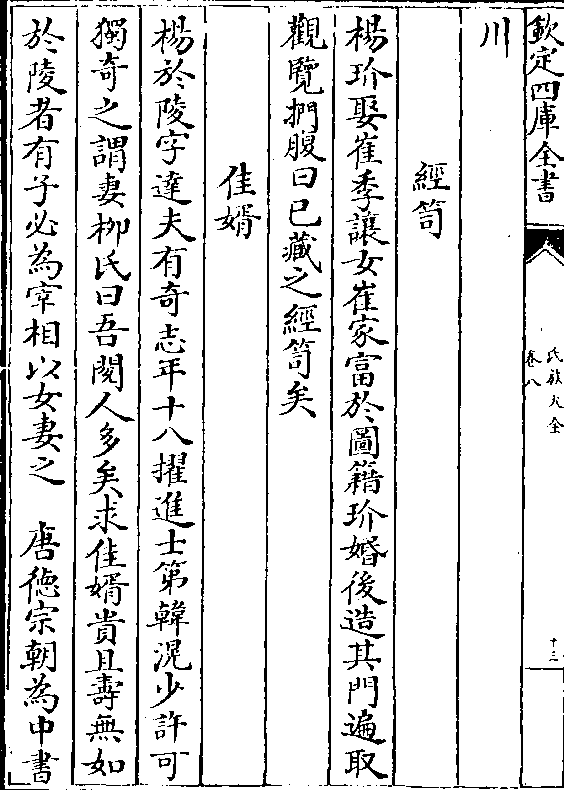 欽定四庫全書
氏族大全
卷八
十三
川
經笥
楊玠娶崔季讓女崔家富於圖籍玠婚後造其門遍取
觀覽捫腹曰已藏之經笥矣
佳婿
楊於陵字達夫有奇志年十八擢進士第韓滉少許可
獨奇之謂妻柳氏曰吾閱人多矣求佳婿貴且壽無如
於陵者有子必為宰相以女妻之 唐德宗朝為中書